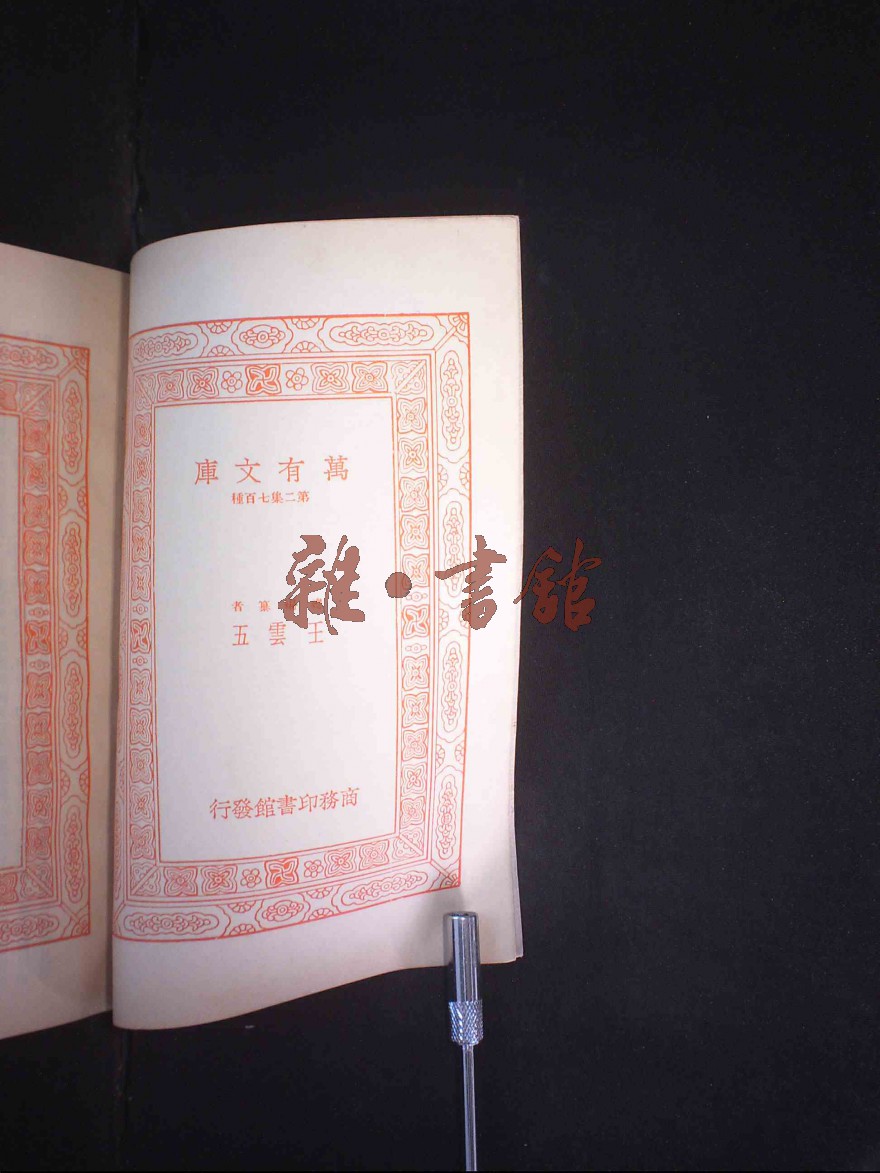 萬有文庫
第二集七百種
纂者
王雲五
商務印書館發行
雜·書館